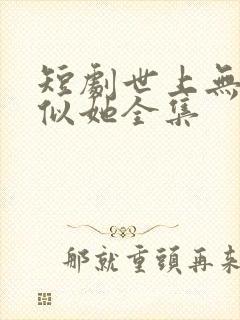 短劇世上無
似她全集
那就重頭再來